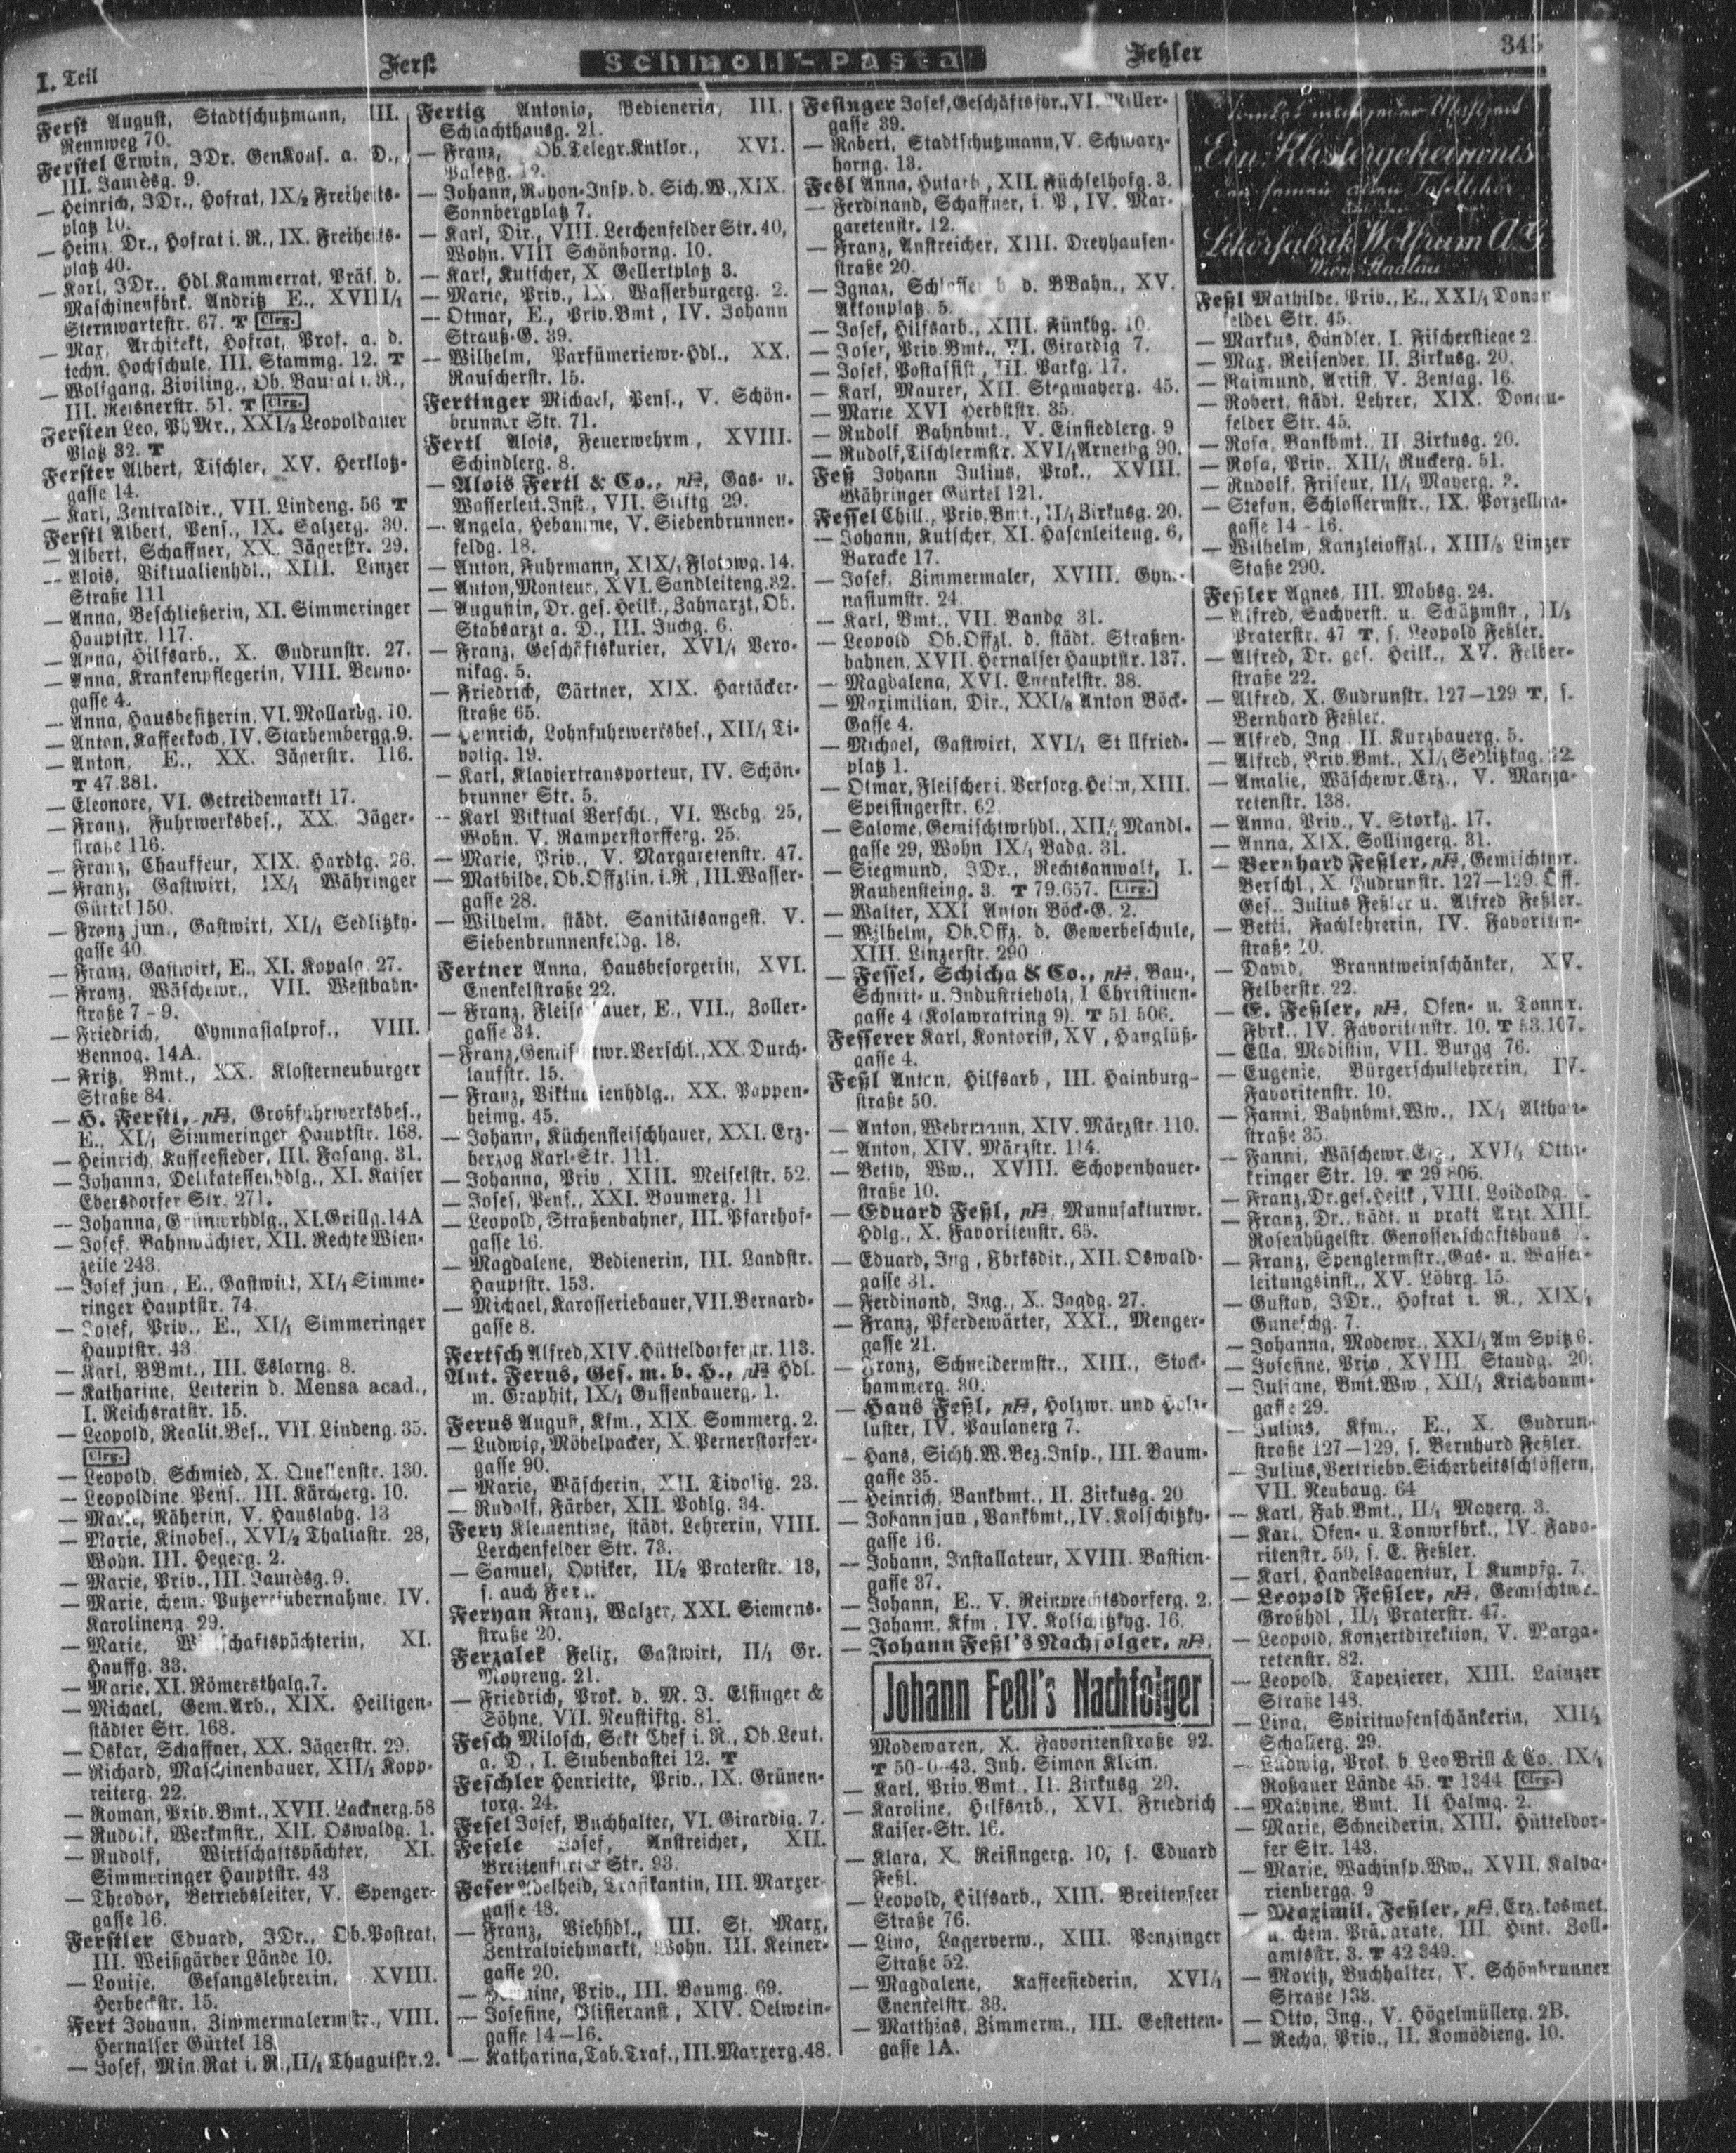 I. Teil
Ferst
Schmoll-Pasta
Feßler
345
Ferst August, Stadtschutzmann, III.
Rennweg 70.
Ferstel Erwin, JDr. GenKons. a. D.,
III. Jaurèsg. 9.
— Heinrich, JDr., Hofrat, IX/2 Freiheits-
platz 10.
— Heinz, Dr., Hofrat i. R., IX. Freiheits-
platz 40.
— Karl, JDr., Hdl.Kammerrat, Präs. d.
Maschinenfbrk. Andritz E., XVIII/1
Sternwartestr. 67. T Clrg.
— Max, Architekt, Hofrat, Prof. a. d.
techn. Hochschule, III. Stammg. 12. T
— Wolfgang, Ziviling., Ob. Baurat i. R.,
III. Reisnerstr. 51. T Clrg.
Fersten Leo, PhMr., XXI/3 Leopoldauer
Platz 32. T
Ferster Albert, Tischler, XV. Herklotz-
gasse 14.
— Karl, Zentraldir., VII. Lindeng. 56 T
Ferstl Albert, Pens., IX. Salzerg. 30.
— Albert, Schaffner, XX. Jägerstr. 29.
— Alois, Viktualienhdl., XIII. Linzer
Straße 111
— Anna, Beschließerin, XI. Simmeringer
Hauptstr. 117.
— Anna, Hilfsarb., X. Gudrunstr. 27.
— Anna, Krankenpflegerin, VIII. Benno-
gasse 4.
— Anna, Hausbesitzerin, VI. Mollardg. 10.
— Anton, Kaffeekoch, IV. Starhembergg. 9.
— Anton, E., XX. Jägerstr. 116.
T 47.381.
— Eleonore, VI. Getreidemarkt 17.
— Franz, Fuhrwerksbes., XX. Jäger-
straße 116.
— Franz, Chauffeur, XIX. Hardtg. 26.
— Franz, Gastwirt, IX/1 Währinger
Gürtel 150.
— Franz jun., Gastwirt, XI/1 Sedlitzky-
gasse 40.
— Franz, Gastwirt, E., XI. Kopalg. 27.
— Franz, Wäschewr., VII. Westbahn-
straße 7 - 9.
— Friedrich, Gymnasialprof., VIII.
Bennog. 14A.
— Fritz, Bmt., XX. Klosterneuburger
Straße 84.
— H. Ferstl, pH, Großfuhrwerksbes.,
E., XI/1 Simmeringer Hauptstr. 168.
— Heinrich, Kaffeesieder, III. Fasang. 31.
— Johanna, Delikatessenhdlg., XI. Kaiser
Ebersdorfer Str. 271.
— Johanna, Grünwrhdlg., XI. Grillg. 14A
— Josef, Bahnwächter, XII. Rechte Wien-
zeile 243.
— Josef jun., E., Gastwirt, XI/1 Simme-
ringer Hauptstr. 74.
— Josef, Priv., E., XI/1 Simmeringer
Hauptstr. 43
— Karl, BBmt., III. Eslarng. 8.
— Katharine, Leiterin d. Mensa acad.,
I. Reichsratstr. 15.
— Leopold, Realit.Bes., VII. Lindeng. 35.
Clrg.
— Leopold, Schmied, X. Quellenstr. 130.
— Leopoldine, Pens., III. Kärcherg. 10.
— Marie, Näherin, V. Hauslabg. 13
— Marie, Kinobes., XVI/2 Thaliastr. 28,
Wohn. III. Hegerg. 2.
— Marie, Priv., III. Jaurèsg. 9.
— Marie, chem. Putzereiübernahme, IV.
Karolineng. 29.
— Marie, Wirtschaftspächterin, XI.
Hauffg. 33.
— Marie, XI. Römersthalg. 7.
— Michael, Gem.Arb., XIX. Heiligen-
städter Str. 168.
— Oskar, Schaffner, XX. Jägerstr. 29.
— Richard, Maschinenbauer, XII/1 Kopp-
reiterg. 22.
— Roman, Priv.Bmt., XVII. Lacknerg. 58
— Rudolf, Werkmstr., XII. Oswaldg. 1.
— Rudolf, Wirtschaftspächter, XI.
Simmeringer Hauptstr. 43
— Theodor, Betriebsleiter, V. Spenger-
gasse 16.
Ferstler Eduard, JDr., Ob.Postrat,
III. Weißgärber Lände 10.
— Louise, Gesangslehrerin, XVIII.
Herbeckstr. 15.
Fert Johann, Zimmermalermstr., VIII.
Hernalser Gürtel 18.
— Josef, Min.Rat i. R., II/1 Thuguistr. 2.
Fertig Antonia, Bedienerin, III.
Schlachthausg. 21.
— Franz, Ob.Telegr.Kntlor., XVI.
Paletzg. 12.
— Johann, Rayon-Insp. d. Sich.W., XIX.
Sonnbergplatz 7.
— Karl, Dir., VIII. Lerchenfelder Str. 40,
Wohn. VIII Schönborng. 10.
— Karl, Kutscher, X Gellertplatz 3.
— Marie, Priv., IX. Wasserburgerg. 2.
— Otmar, E., Priv.Bmt, IV. Johann
Strauß-G. 39.
— Wilhelm, Parfümeriewr-Hdl., XX.
Rauscherstr. 15.
Fertinger Michael, Pens., V. Schön-
brunner Str. 71.
Fertl Alois, Feuerwehrm, XVIII.
Schindlerg. 8.
— Alois Fertl & Co., pH, Gas- u.
Wasserleit.Inst., VII. Stiftg 29.
— Angela, Hebamme, V. Siebenbrunnen-
feldg. 18.
— Anton, Fuhrmann, XIX/1 Flotowg. 14.
— Anton, Monteur, XVI. Sandleiteng. 32.
— Augustin, Dr. ges. Heilk., Zahnarzt, Ob.
Stabsarzt a. D., III. Juchg. 6.
— Franz, Geschäftskurier, XVI/1 Vero-
nikag. 5.
— Friedrich, Gärtner, XIX. Hartäcker-
straße 65.
— Heinrich, Lohnfuhrwerksbes., XII/1 Ti-
volig. 19.
— Karl, Klaviertransporteur, IV. Schön-
brunner Str. 5.
— Karl Viktual Verschl., VI. Webg. 25,
Wohn. V. Ramperstorfferg. 25.
— Marie, Priv., V. Margaretenstr. 47.
— Mathilde, Ob.Offzlin. i.R., III. Wasser-
gasse 28.
— Wilhelm, städt. Sanitätsangest. V.
Siebenbrunnenfeldg. 18.
Fertner Anna, Hausbesorgerin, XVI.
Enenkelstraße 22.
— Franz, Fleischhauer, E., VII., Zoller-
gasse 34.
— Franz, Gemischtwr.Verschl., XX. Durch-
laufstr. 15.
— Franz, Viktualienhdlg., XX. Pappen-
heimg. 45.
— Johann, Küchenfleischhauer, XXI. Erz-
herzog Karl-Str. 111.
— Johanna, Priv., XIII. Meiselstr. 52.
— Josef, Pens., XXI. Baumerg. 11
— Leopold, Straßenbahner, III. Pfarrhof-
gasse 16.
— Magdalene, Bedienerin, III. Landstr.
Hauptstr. 153.
— Michael, Karosseriebauer, VII. Bernard-
gasse 8.
Fertsch Alfred, XIV. Hütteldorferstr. 113.
Ant. Ferus, Ges. m. b. H., pH Hdl.
m. Graphit, IX/1 Gussenbauerg. 1.
Ferus August, Kfm., XIX. Sommerg. 2.
— Ludwig, Möbelpacker, X. Pernerstorfer-
gasse 90.
— Marie, Wäscherin, XII. Tivolig. 23.
— Rudolf, Färber, XII. Pohlg. 34.
Fery Klementine, städt. Lehrerin, VIII.
Lerchenfelder Str. 73.
— Samuel, Optiker, II/2 Praterstr. 13,
s. auch
Feryan Franz, Walzer, XXI. Siemens-
straße 20.
Ferzalek Felix, Gastwirt, II/1 Gr.
Mohreng. 21.
— Friedrich, Prok. d. M. J. Elsinger &
Söhne, VII. Neustiftg. 81.
Fesch Milosch, Sekt Chef i. R., Ob.Leut.
a. D., I. Stubenbastei 12. T
Feschler Henriette, Priv., IX. Grünen-
torg. 24.
Fesel Josef, Buchhalter, VI. Girardig. 7.
Fesele Josef, Anstreicher, XII.
Breitenfurter Str. 93.
Feser Adelheid, Trafikantin, III. Marxer-
gasse 48.
— Franz, Viehhdl., III. St. Marx,
Zentralviehmarkt, Wohn. III. Keiner-
gasse 20.
— Priv., III. Baumg. 69.
— Josefine, Plisieranst, XIV. Oelwein-
gasse 14—16.
— Katharina, Tab.Traf., III. Marxerg. 48.
Fesinger Josef, Geschäftsfhr., VI. Miller-
gasse 39.
— Robert, Stadtschutzmann, V. Schwarz-
horng. 13.
Fesl Anna, Hutarb, XII. Füchselhofg. 3.
— Ferdinand, Schaffner, i. P, IV. Mar-
garetenstr. 12.
— Franz, Anstreicher, XIII. Dreyhausen-
straße 20.
— Ignaz, Schlosser b d. BBahn., XV.
Akkonplatz 5.
— Josef, Hilfsarb., XIII. Fünkhg. 10.
— Josef, Priv.Bmt., VI. Girardig 7.
— Josef, Postassist., III. Parkg. 17.
— Karl, Maurer, XII. Stegmayerg. 45.
— Marie XVI Herbststr. 35.
— Rudolf Bahnbmt., V. Einsiedlerg. 9
— Rudolf, Tischlermstr. XVI/1 Arnethg 90.
Feß Johann Julius, Prok., XVIII.
Währinger Gürtel 121.
Fessel Chill., Priv.Bmt., II/1 Zirkusg. 20.
— Johann, Kutscher, XI. Hasenleiteng. 6,
Baracke 17.
— Josef, Zimmermaler, XVIII. Gym-
nasiumstr. 24.
— Karl, Bmt., VII. Bandg 31.
— Leopold Ob.Offzl. d. städt. Straßen-
bahnen, XVII. Hernalser Hauptstr. 137.
— Magdalena, XVI. Enenkelstr. 38.
— Maximilian, Dir., XXI/8 Anton Böck-
Gasse 4.
— Michael, Gastwirt, XVI/1 Stillfried-
platz 1.
— Otmar, Fleischer i. Versorg.Heim, XIII.
Speisingerstr. 62
— Salome, Gemischtwrhdl., XII/1 Mandl-
gasse 29, Wohn IX/1 Badg. 31.
— Siegmund, JDr., Rechtsanwalt, I.
Rauhensteing. 3. T 79.657. Clrg.
— Walter, XXI Anton Böck-G. 2.
— Wilhelm, Ob.Offz. d. Gewerbeschule,
XIII. Linzerstr. 290
— Fessel, Schicha & Co., pH, Bau-,
Schnitt- u. Industrieholz, I Christinen-
gasse 4 (Kolowratring 9). T 51 506.
Fesserer Karl, Kontorist, XV, Hanglüß-
gasse 4.
Feßl Anton, Hilfsarb, III. Hainburg-
straße 50.
— Anton, Wehrmann, XIV. Märzstr. 110.
— Anton, XIV. Märzstr. 114.
— Betty, Ww., XVIII. Schopenhauer-
straße 10.
— Eduard Feßl, pH, Manufakturwr.
Hdlg., X. Favoritenstr. 65.
— Eduard, Ing, Fbrksdir., XII. Oswald-
gasse 31.
— Ferdinand, Ing., X. Jagdg. 27.
— Franz, Pferdewärter, XXI., Menger-
gasse 21.
— Franz, Schneidermstr., XIII., Stock-
hammerg. 30.
— Hans Feßl, pH, Holzwr. und Holz-
luster, IV. Paulanerg 7.
— Hans, Sichh.W.Bez.Insp., III. Baum-
gasse 35.
— Heinrich, Bankbmt., II. Zirkusg. 20
— Johann jun, Bankbmt., IV. Kolschitzky-
gasse 16.
— Johann, Installateur, XVIII. Bastien-
gasse 37.
— Johann, E., V. Reinprechtsdorferg. 2.
— Johann, Kfm, IV. Kolschitzkyg. 16.
— Johann Feßl's Nachfolger, pH,
Johann Feßl's Nachfolger
Modewaren, X. Favoritenstraße 92.
T 50-0-43. Inh. Simon Klein.
— Karl, Priv.Bmt., II. Zirkusg. 20.
— Karoline, Hilfsarb., XVI. Friedrich
Kaiser-Str. 16.
— Klara, X. Reisingerg. 10, s. Eduard
Feßl.
— Leopold, Hilfsarb., XIII. Breitenseer
Straße 76.
— Lino, Lagerverw., XIII. Penzinger
Straße 52.
— Magdalene, Kaffeesiederin, XVI/1
Enenkelstr. 38.
— Matthias, Zimmerm., III. Gestetten-
gasse 1A.
Ein Klostergeheimnis
Likörfabrik Wolfrum A.G.
Wien-Stadlau
Feßl Mathilde, Priv., E., XXI/1 Donau-
felder Str. 45.
— Markus, Händler, I. Fischerstiege 2
— Max, Reisender, II. Zirkusg. 20.
— Raimund, Artist, V. Zentag. 16.
— Robert, städt. Lehrer, XIX. Donau-
felder Str. 45.
— Rosa, Bankbmt., II Zirkusg. 20.
— Rosa, Priv. XII/1 Ruckerg. 51.
— Rudolf, Friseur, II/1 Mayerg.
— Stefan, Schlossermstr., IX. Porzellan-
gasse 14 - 16.
— Wilhelm, Kanzleioffzl., XIII/5 Linzer
Staße 290.
Feßler Agnes, III. Mohsg. 24.
— Alfred, Sachverst. u. Schätzmstr., II/1
Praterstr. 47 T, s. Leopold Feßler.
— Alfred, Dr. ges. Heilk., XV. Felber-
straße 22.
— Alfred, X. Gudrunstr. 127—129 T, s.
Bernhard Feßler.
— Alfred, Ing II. Kurzbauerg. 5.
— Alfred, Priv.Bmt., XI/1 Sedlitzkyg. 22
— Amalie, Wäschewr.Erz., V. Marga-
retenstr. 138.
— Anna, Priv., V. Storkg. 17.
— Anna, XIX. Sollingerg. 31.
— Bernhard Feßler, pH, Gemischtwr.
Verschl., X. Gudrunstr. 127—129. Off.
Ges. Julius Feßler u. Alfred Feßler.
— Betti, Fachlehrerin, IV. Favoriten-
straße 10.
— David, Branntweinschänker, XV.
Felberstr. 22.
— E. Feßler, pH, Ofen- u. Tonwr.
Fbrk., IV. Favoritenstr. 10. T 53.107.
— Ella, Modistin, VII. Burgg 76.
— Eugenie, Bürgerschullehrerin, IV.
Favoritenstr. 10.
— Fanni, Bahnbmt.Ww., IX/1 Althan-
straße 35.
— Fanni, Wäschewr.Erz., XVI/1 Otta-
kringer Str. 19. T 29 806.
— Franz, Dr. ges. Heilk, VIII. Loidoldg.
— Franz, Dr., städt. u prakt Arzt, XIII.
Rosenhügelstr. Genossenschaftshaus
— Franz, Spenglermstr., Gas- u. Wasser-
leitungsinst., XV. Löhrg. 15.
— Gustav, JDr., Hofrat i. R., XIX/1
Guneschg. 7.
— Johanna, Modewr., XXI/1 Am Spitz 6.
— Josefine, Priv, XVIII. Staudg. 20.
— Juliane, Bmt.Ww, XII/1 Krichbaum-
gasse 29.
— Julius, Kfm., E., X. Gudrun-
straße 127—129, s. Bernhard Feßler.
— Julius, Vertrieb v. Sicherheitsschlössern,
VII. Neubaug. 64
— Karl, Fab.Bmt., II/1 Mayerg. 3.
— Karl, Ofen- u. Tonwrfbrk., IV. Favo-
ritenstr. 50, s. E. Feßler.
— Karl, Handelsagentur, I Kumpfg. 7.
— Leopold Feßler, pH, Gemischtwr.
Großhdl, II/1 Praterstr. 47.
— Leopold, Konzertdirektion, V. Marga-
retenstr. 82.
— Leopold, Tapezierer, XIII. Lainzer
Straße 148.
— Lina, Spirituosenschänkerin, XII/1
Schallerg. 29.
— Ludwig, Prok. b Leo Brill & Co. IX/1
Roßauer Lände 45. T 1344 Clrg.
— Malvine, Bmt. II Halmg. 2.
— Marie, Schneiderin, XIII. Hütteldor-
fer Str. 143.
— Marie, Wachinsp.Ww., XVII. Kalva-
rienbergg. 9
— Maximil. Feßler, pH, Erz. kosmet.
u. chem. Präparate, III. Hint. Zoll-
amtsstr. 3. T 42 349.
— Moritz, Buchhalter, V. Schönbrunner
Straße 138.
— Otto, Ing., V. Högelmüllerg. 2B.
— Recha, Priv., II. Komödieng. 10.